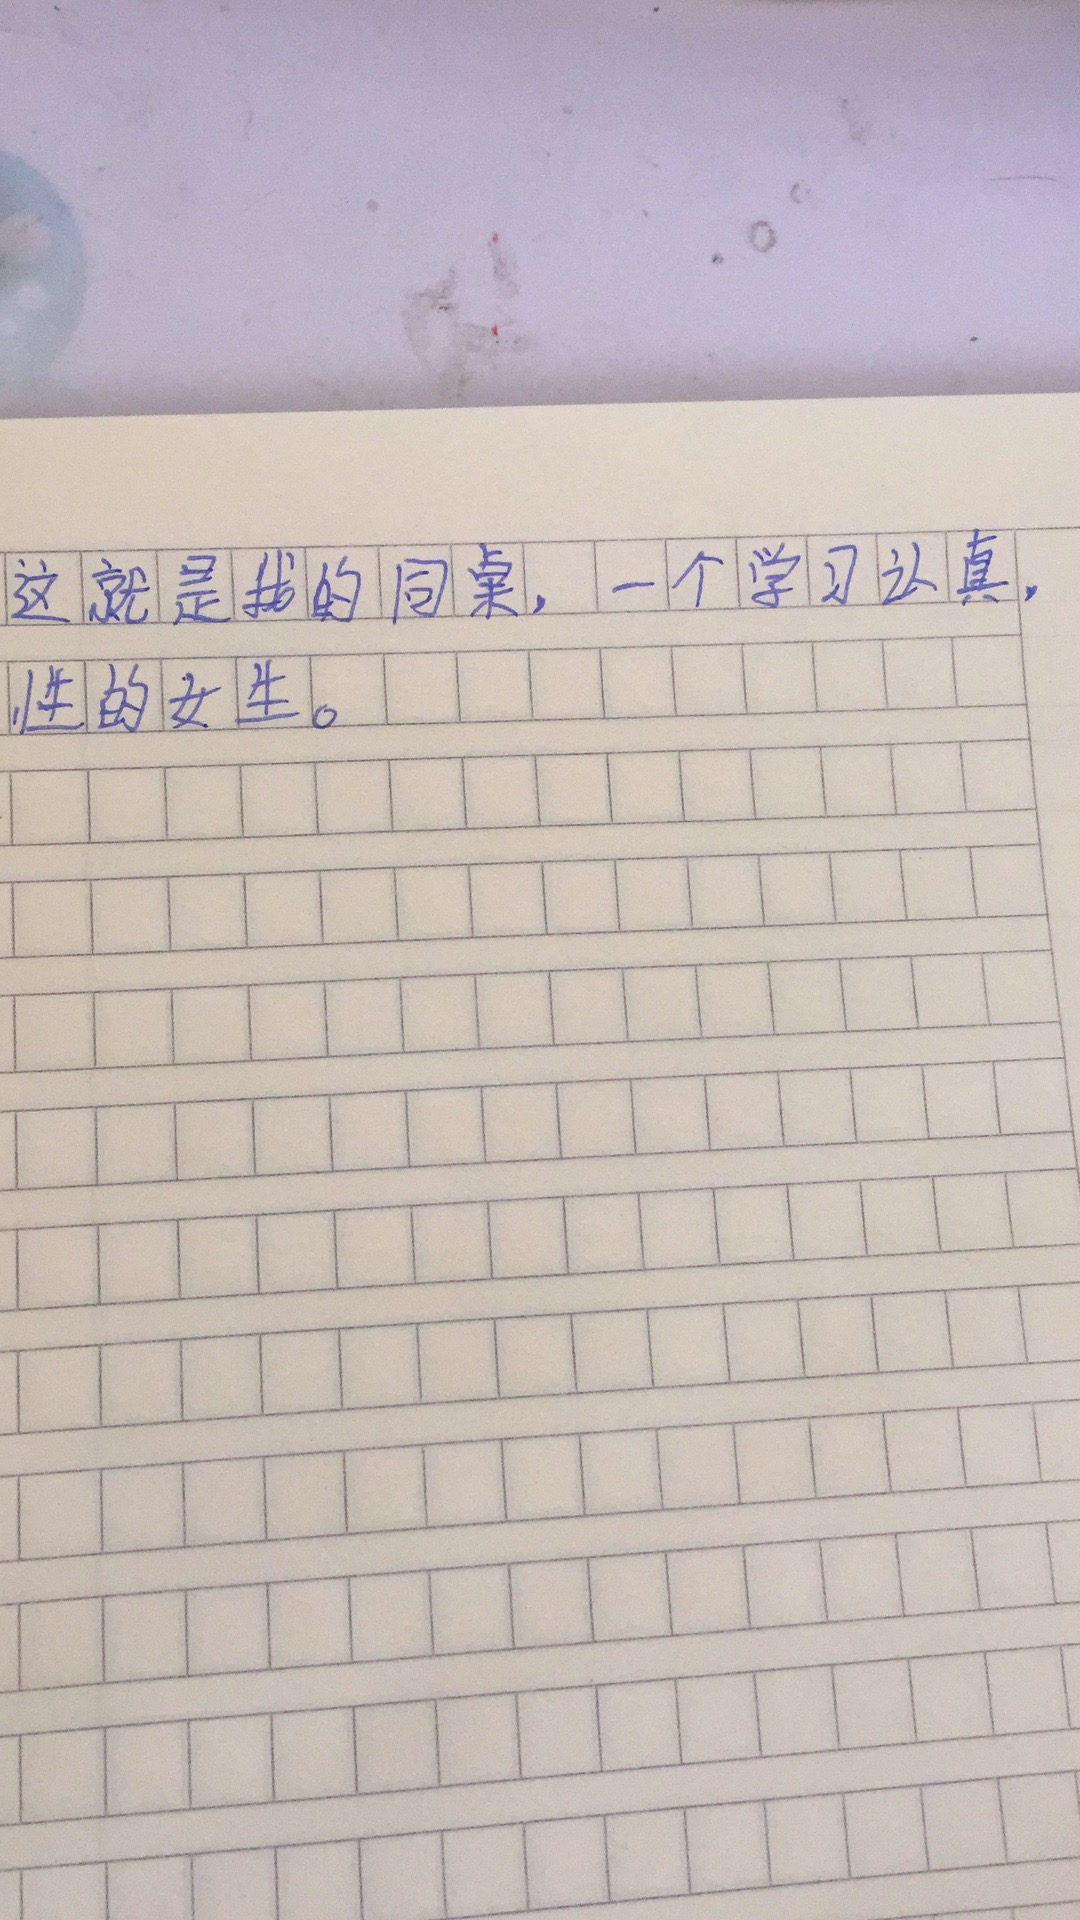 这就是我的同桌，一个学习认真，
性的女生。